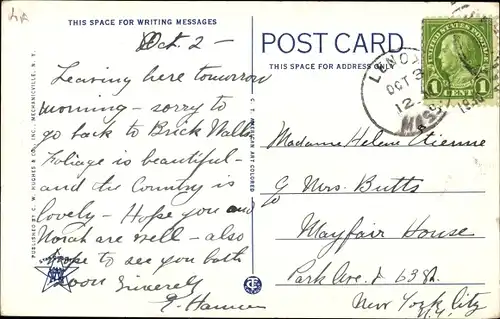 THIS SPACE FOR WRITING MESSAGES
Oct. 2 –
Leaving here tomorrow
morning – sorry to
go back to Brick Walls
Foliage is beautiful –
and the Country is
lovely – Hope you and
Norah are well – also
hope to see you both
Soon Sincerely
PUBLISHED BY C. W. HUGHES & CO., INC., MECHANICVILLE, N. Y.
C. T. AMERICAN ART COLORED
POST CARD
THIS SPACE FOR ADDRESS ONLY
LENOX
OCT 3
12
MASS
UNITED STATES POSTAGE
1 CENT 1
Madame Helene
Mrs. Butts
Mayfair House
Park Ave. & 63 St.
New York City
N.Y.